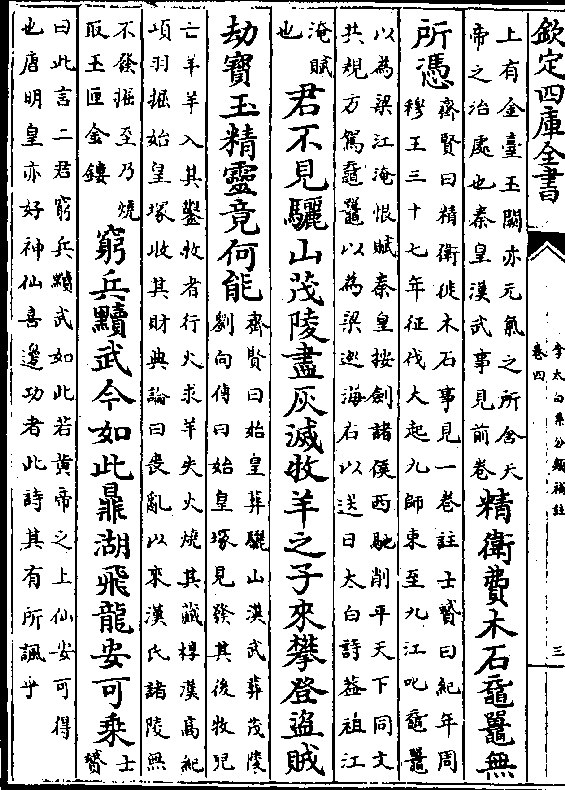 欽定四庫全書
李太白集分類補註
卷四
三
上有金臺玉闕亦元氣之所含天
帝之治處也秦皇漢武事見前卷
精衛費木石黿鼉無
所憑
齊賢曰精衛銜木石事見一卷註士贇曰紀年周
穆王三十七年征伐大起九師東至九江叱黿鼉
以為梁江淹恨賦秦皇按劍諸侯西馳削平天下同文
共規方駕黿鼉以為梁巡海右以送日太白詩葢祖江
淹賦
也
君不見驪山茂陵盡灰滅牧羊之子來攀登盜賊
劫寶玉精靈竟何能
齊賢曰始皇葬驪山漢武葬茂陵
劉向傳曰始皇塚見發其後牧兒
亡羊羊入其鑿牧者行火求羊失火燒其藏椁漢高紀
項羽掘始皇塚收其財典論曰喪亂以來漢氏諸陵無
不發掘至乃燒
取玉匣金鏤
窮兵黷武今如此鼎湖飛龍安可乘
士
贇
曰此言二君窮兵黷武如此若黃帝之上仙安可得
也唐明皇亦好神仙喜邊功者此詩其有所諷乎